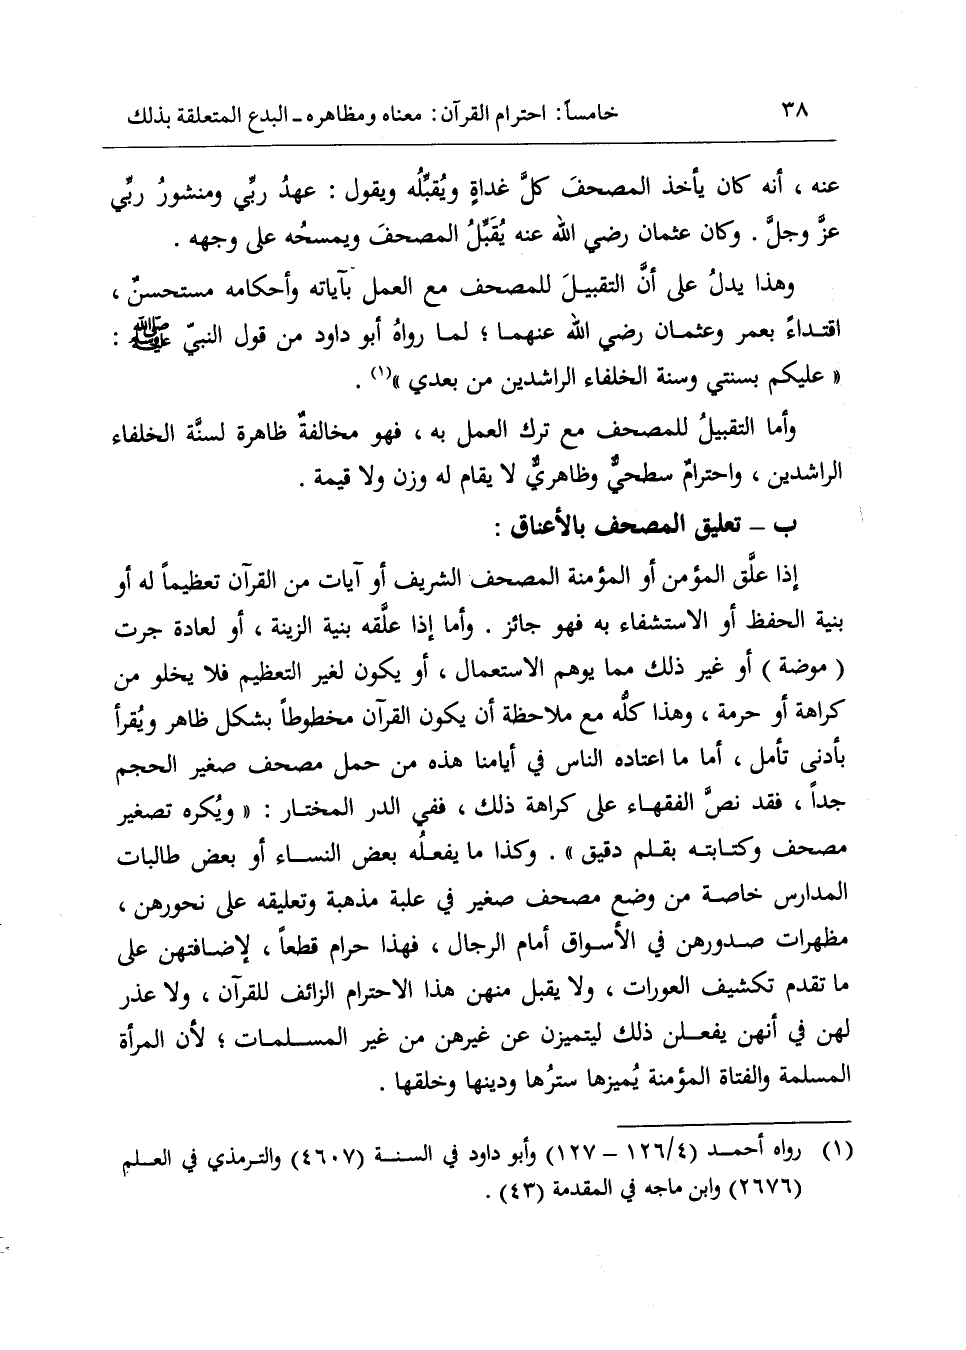 ٣٨ خامساً: احترام القرآن: معناه ومظاهره ـ البدع المتعلقة بذلك
عنه ، أنه كان يأخذ المصحفَ كلَّ غداةٍ ويُقبِّلُه ويقول : عهدُ ربِّي ومنشورُ ربِّي
عزَّ وجلَّ . وكان عثمان رضي الله عنه يُقَبِّلُ المصحفَ ويمسحُه على وجهه .
وهذا يدلُ على أنَّ التقبيلَ للمصحف مع العمل بآياته وأحكامه مستحسنٌ ،
اقتداءً بعمر وعثمان رضي الله عنهما ؛ لما رواهُ أبو داود من قول النبيّ ﷺ :
« عليكم بسنتي وسنة الخلفاء الراشدين من بعدي »(١) .
وأما التقبيلُ للمصحف مع ترك العمل به ، فهو مخالفةٌ ظاهرة لسنَّة الخلفاء
الراشدين ، واحترامٌ سطحيٌّ وظاهريٌّ لا يقام له وزن ولا قيمة .
ب ـ تعليق المصحف بالأعناق :
إذا علَّق المؤمن أو المؤمنة المصحف الشريف أو آيات من القرآن تعظيماً له أو
بنية الحفظ أو الاستشفاء به فهو جائز . وأما إذا علقه بنية الزينة ، أو لعادة جرت
( موضة ) أو غير ذلك مما يوهم الاستعمال ، أو يكون لغير التعظيم فلا يخلو من
كراهة أو حرمة ، وهذا كلُّه مع ملاحظة أن يكون القرآن مخطوطاً بشكل ظاهر ويُقرأ
بأدنى تأمل ، أما ما اعتاده الناس في أيامنا هذه من حمل مصحف صغير الحجم
جداً ، فقد نصَّ الفقهاء على كراهة ذلك ، ففي الدر المختار : « ويُكره تصغير
مصحف وكتابته بقلم دقيق » . وكذا ما يفعلُه بعض النساء أو بعض طالبات
المدارس خاصة من وضع مصحف صغير في علبة مذهبة وتعليقه على نحورهن ،
مظهرات صدورهن في الأسواق أمام الرجال ، فهذا حرام قطعاً ، لإضافتهن على
ما تقدم تكشيف العورات ، ولا يقبل منهن هذا الاحترام الزائف للقرآن ، ولا عذر
لهن في أنهن يفعلن ذلك ليتميزن عن غيرهن من غير المسلمات ؛ لأن المرأة
المسلمة والفتاة المؤمنة يُميزها سترُها ودينها وخلقها .
(١) رواه أحمد (٤/ ١٢٦ ـ ١٢٧) وأبو داود في السنة (٤٦٠٧) والترمذي في العلم
(٢٦٧٦) وابن ماجه في المقدمة (٤٣) .